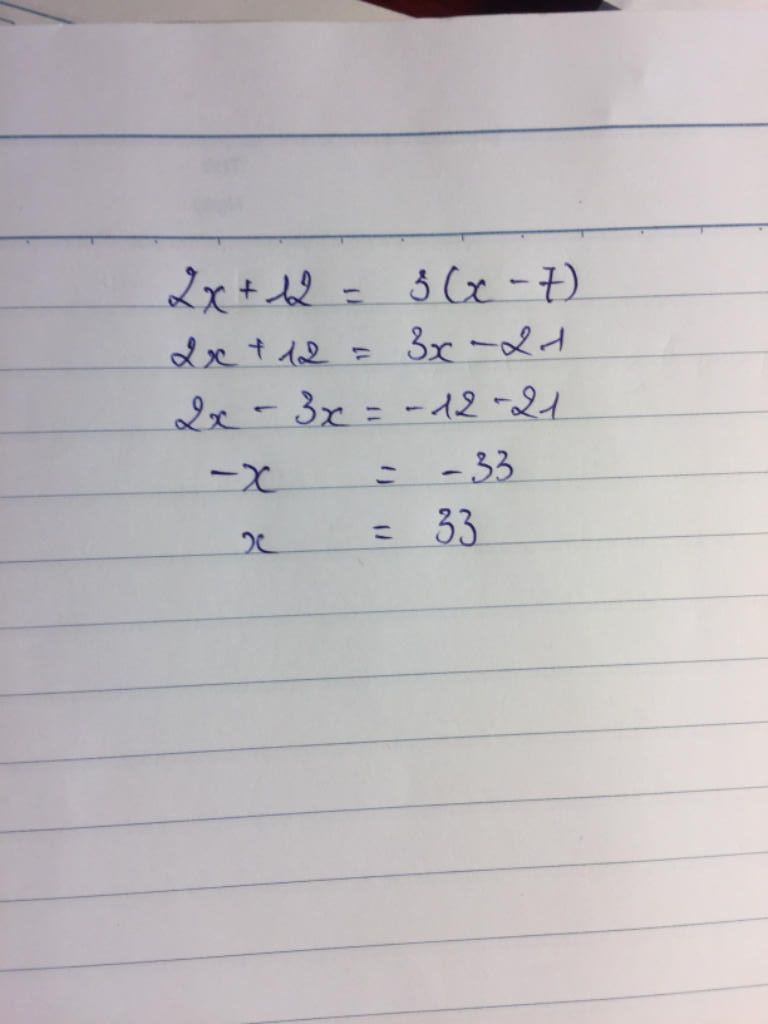 2x + 12 = 3(x - 7)
2x + 12 = 3x - 21
2x - 3x = -12 - 21
-x = -33
x = 33